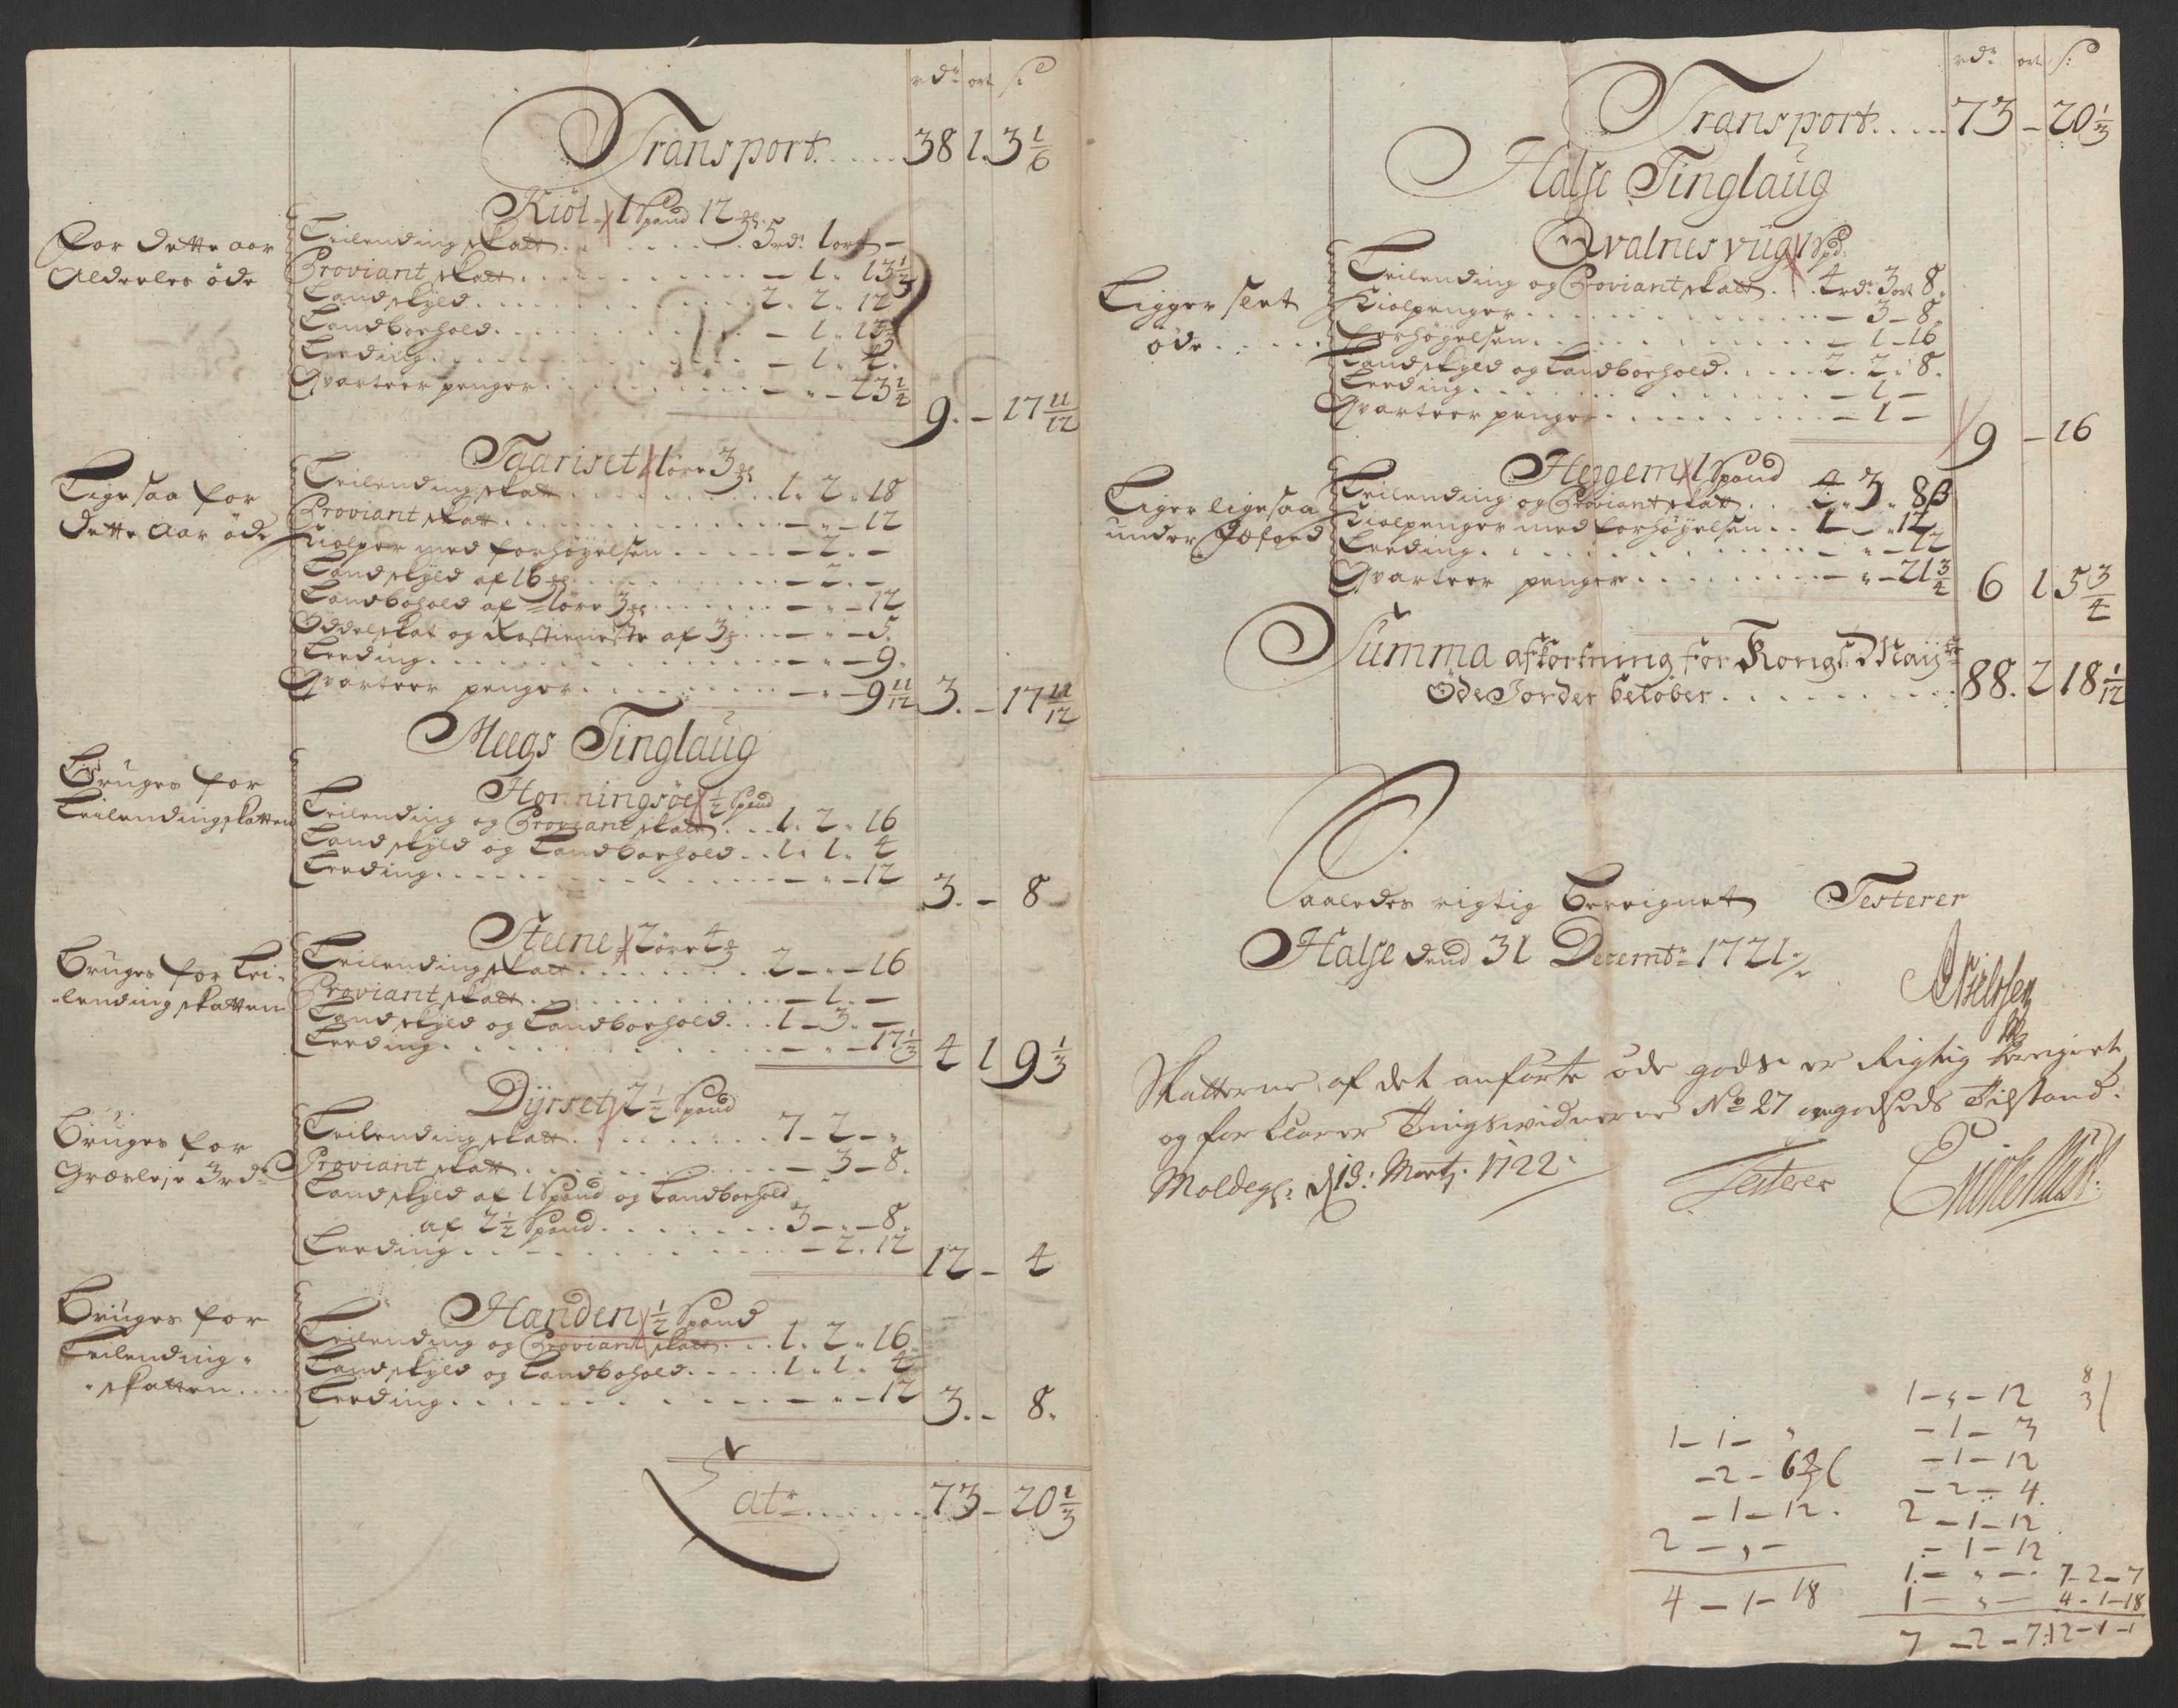 rdr ort s:
Transport..... 38 1. 3 1/6
Kiöl 1 Spand 12
For dette aar Aldeeles öde
Leilending skatt....... 5 rdr 1 ort -
Proviant skatt....... - 1. 13 1/3
Landskyld....... 2. 2. 12
Landborhold....... - 1.
Leeding....... - 1. 4.
Qvarteer penger....... - - 23 1/4
9. - 17 11/12
Taariset 1 öre 3
Ligesaa for dette aar öde
Leilending skatt....... 1. 2. 18
Proviant skatt....... - - 12
Kiolper med forhöyelsen..... - 2. -
Landskyld af 16....... - 2. -
Landbohold af 1 öre 3....... - - 12
Oddelskat og Rostieneste af 3... - - 5.
Leeding....... - - 9.
Qvarteer penger....... - - 9 11/12
3. - 17 11/12
Meegs Tinglaug
Honningsöe 1/2 Spand
Bruges for Leilendingskatten
Leilending og Proviant skatt... 1. 2. 16
Landskyld og Landborhold... 1. 1. 4
Leeding....... - - 12
3. - 8
Steene 2 öre 4
Bruges for Lei-
lending skatten
Leilending skatt....... 2 - - 16
Proviant skatt....... - 1. -
Landskyld og Landborhold... 1 - 3. -
Leeding....... - - 17 1/3
4 1 9 1/3
Dyrset 2 1/2 Spand
Bruges for Græsleje 3 rdr
Leilending skatt....... 7 - 2 - -
Proviant skatt....... - 3 - 8.
Landskyld af 1 Spand og Landborhold
af 2 1/2 Spand....... 3 - - 8.
Leeding....... - 2. 12
12 - 4
Handen 1/2 Spand
Bruges for Leilending-
skatten....
Leilending og Proviant skatt... 1. 2. 16
Landskyld og Landbohold..... 1. 1. 4
Leeding....... - - 12
3. - 8.
Latr...... 73 - 20 1/3
rdr ort s:
Transport..... 73 - 20 1/3
Halse Tinglaug
Qvalnesvug 1 Spd:
Ligger sent öde.....
Leilending og Proviant skatt... 4 rdr 3 ort 8.
Kiolpenger....... - 3 - 8.
Forhöyelsen....... - 1 - 16
Landskyld og Landborhold..... 2. 2. 8.
Leeding....... - 1 -
Qvarteer penger....... - 1 -
9 - 16
Heggem 1 Spand
Liger ligesaa under
Leilending og Proviant skatt... 4. 3. 8 ß
Kiolpenger med forhöyelsen... 1. - 12
Leeding....... - - 12
Qvarteer penger....... - - 21 3/4
6 1 5 3/4
Summa afkortning for Kongl: Maijts
Öde Jorder belöber....... 88. 2 18 1/12
Saaledes rigtig bereignet Testerer
Halse dend 31 Decembr 1721
Skatterne af det anförte öde gods er Rigtig
og forklarer Tingswidnerne No 27 godseds Tilstand.
Moldegr: d 13: Martj. 1722.
Testerer
1 - 1 - ,
- 2 - 6
- 1 - 12.
2 - , -
4 - 1 - 18
1 - , - 12
- 1 - 3
- 1 - 12
- 2 - 4.
2 - 1 - 12
- 1 - 12
1. - , - 7 - 2 - 7
1 - , - 4 - 1 - 18
7 - 2 - 7: 12 - 1 - 1
8
3